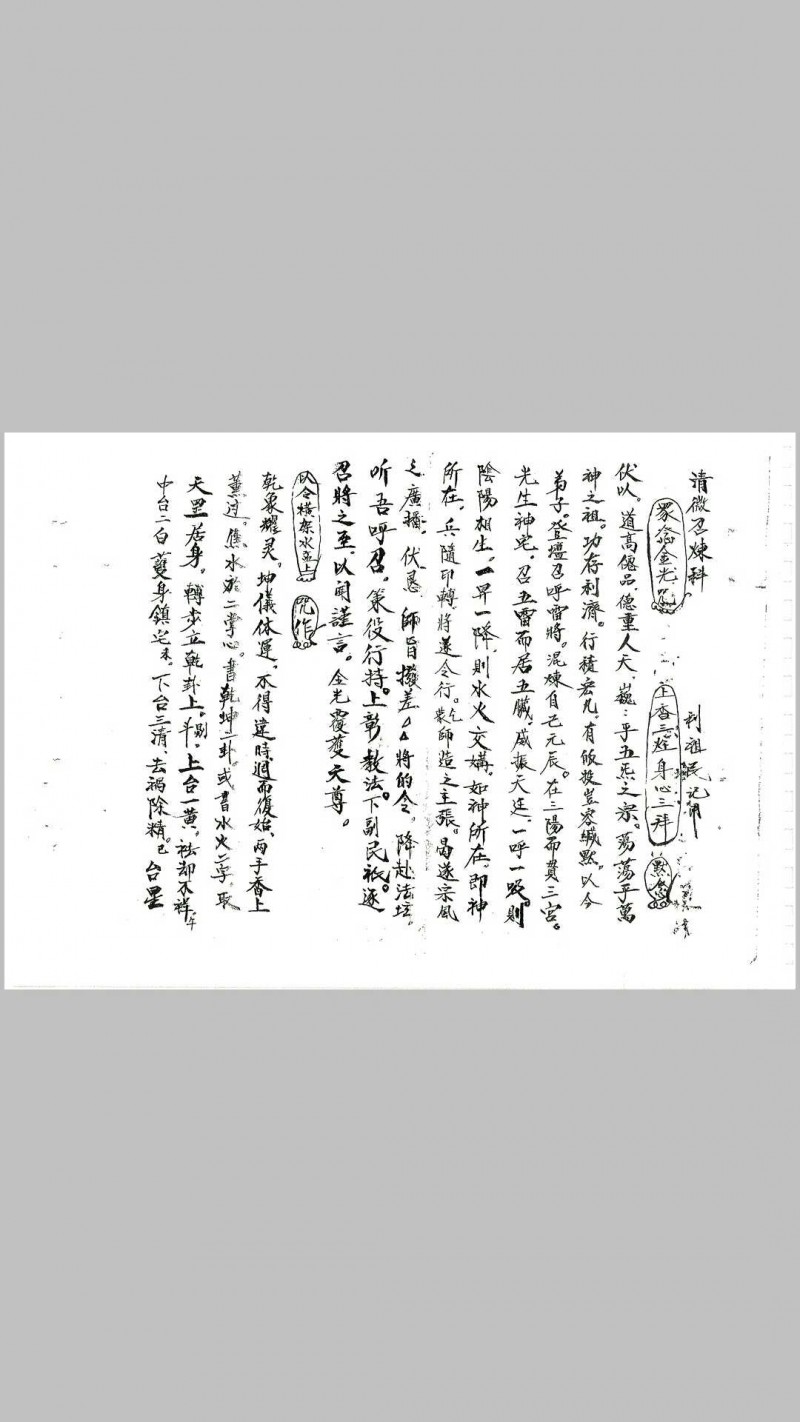 清微召煉科
利祖民記用
眾念金光咒
主香三炷身心三拜 默念
伏以。道高僊品，德重人天，巍：乎五炁之宗。蕩蕩乎萬
神之祖。功存利濟。行積宏凡，有皈投豈容緘默。以今
弟子。登壇召呼雷將。混煉自己元辰。在三陽而貫三宮。
光生神宅，召五雷而居五臟。威振天廷，一呼一吸。則
陰陽相生，一昇一降，則水火交媾。如神所在，即神
所在，兵隨印轉將遂令行。乞師造之主張。曷遂宗風
之廣播。伏恳 師旨撥差△△將的令，降赴法坛，
听吾呼召。策役行持。上彰教法。下副民祇。逐
召將之至，以聞謹言。金光覆護天尊。
以令橫架水盂上 咒作
乾象耀灵。坤儀体運，不得違時，週而復始，兩手香上
薰过。焦水於二掌心。書乾坤二卦或書水火二字，取
天罡居身。轉步立乾卦上。斗剔，上台一黄。祛却不祥午
中台二白護身鎮宅未。下台三清，去禍除精。巳台星